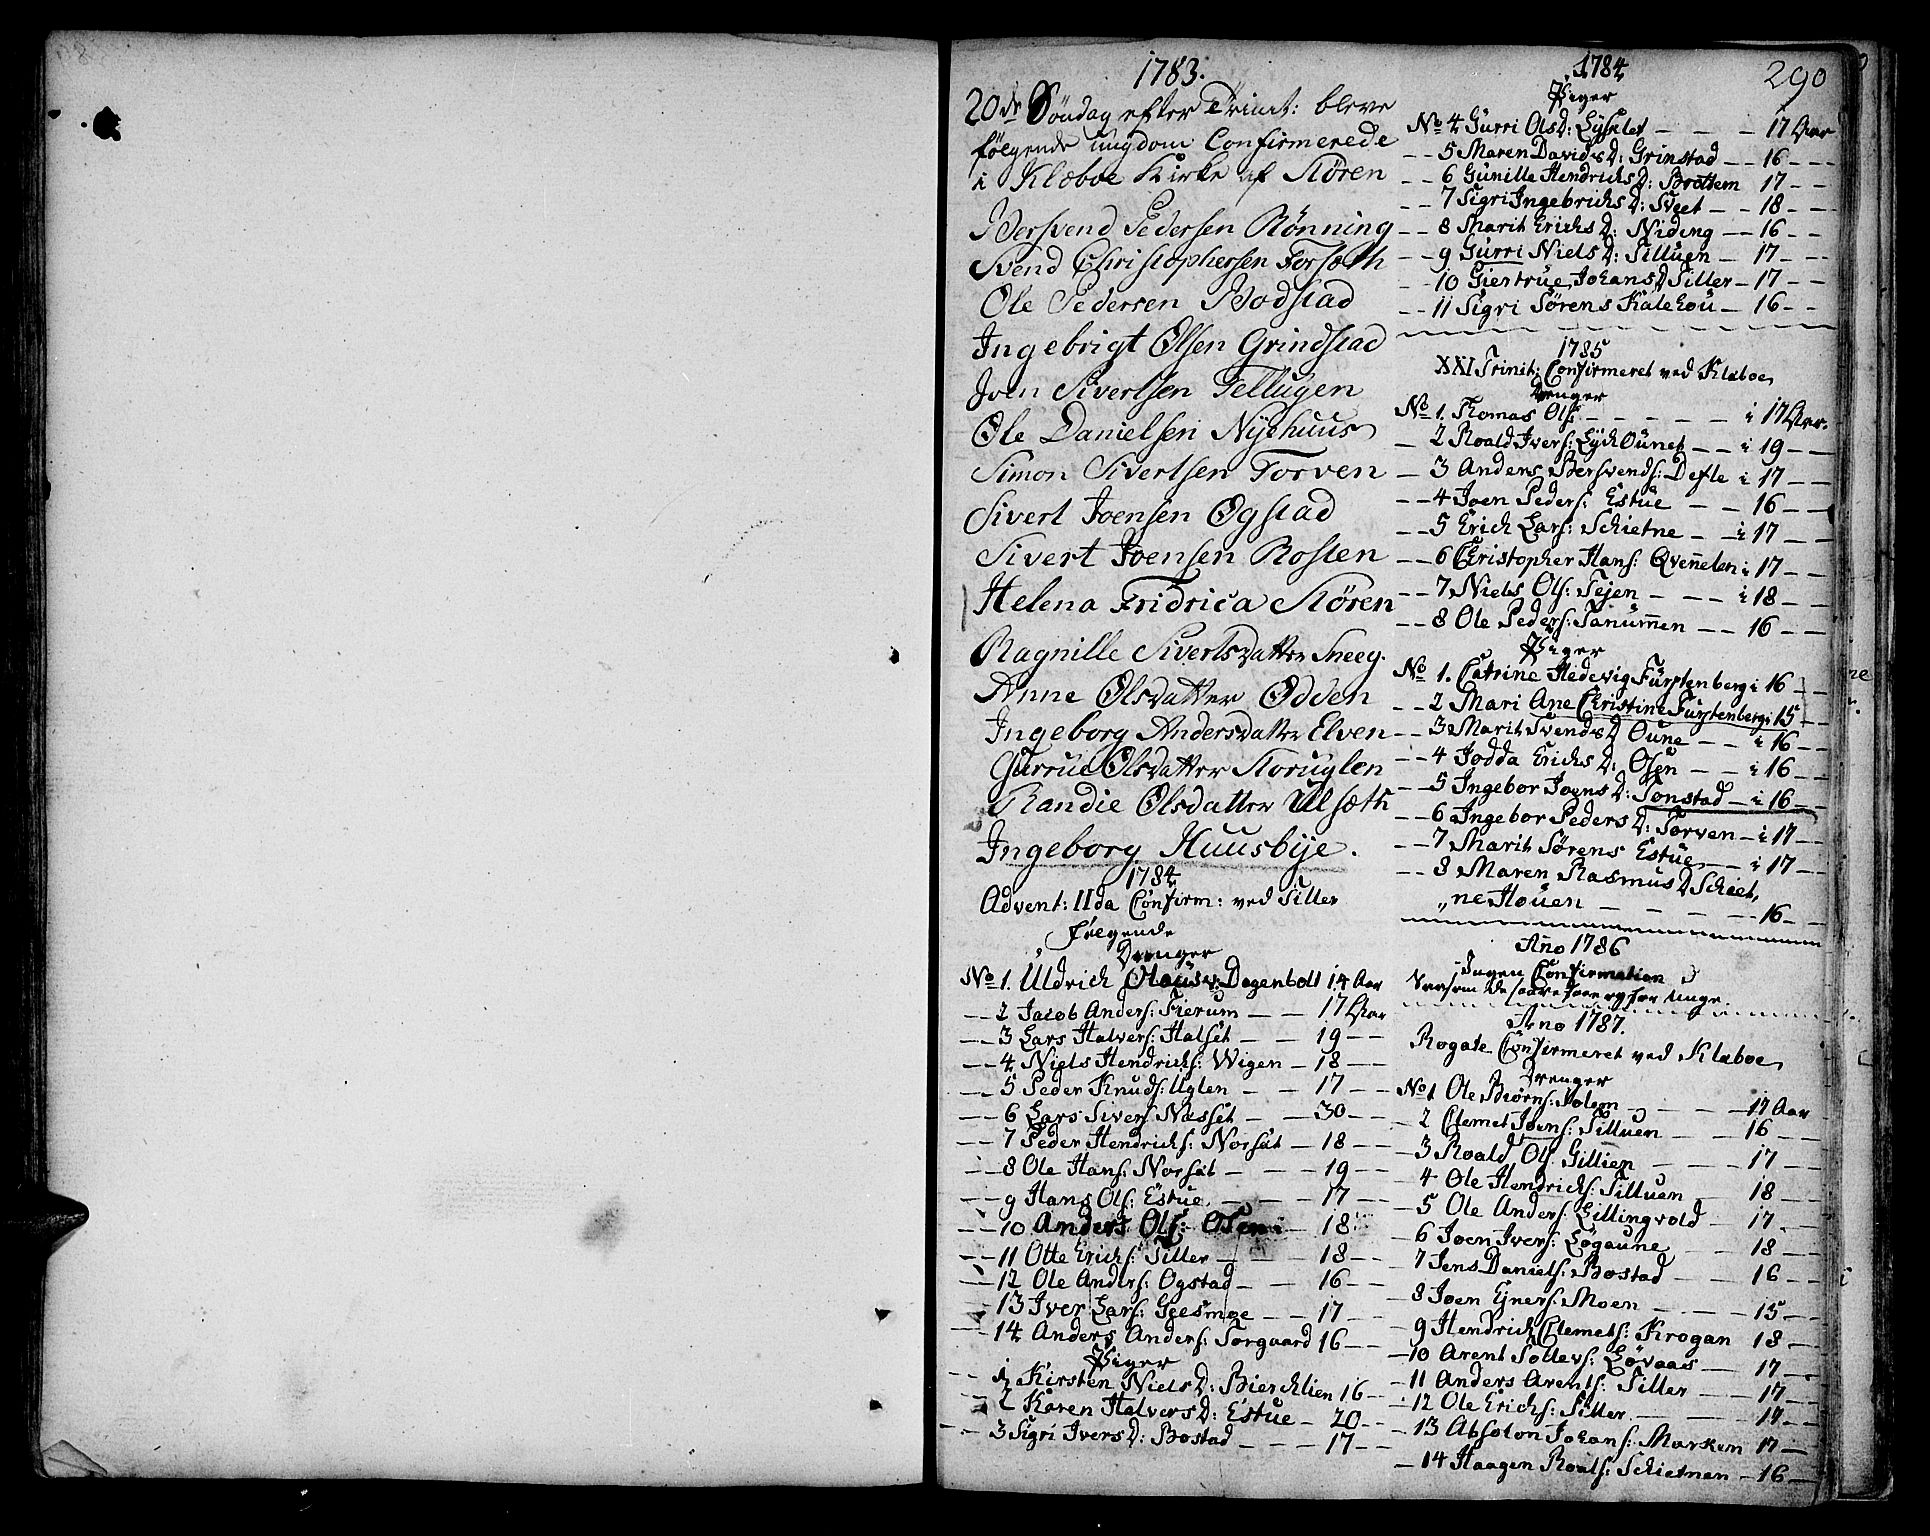 290
1783.
20de Söndag efter Trinit: bleve
følgende ungdom Confirmerede
i Klæboe Kirke af Stören
Bersvend Pedersen Rönning
Svend Christophersen Forsæth
Ole Pedersen Bodstad
Ingebrigt Olsen Grindstad
Joen Sivertsen Tellugen
Ole Danielsen Nyehuus
Simon Sivertsen Torven
Sivert Joensen Ogstad
Sivert Joensen Rosten
Helena Fridrica Stören
Ragnille Sivertsdatter Sneeg.
Anne Olsdatter Odden
Ingeborg Andersdatter Elven
Gurrue Olsdatter Storuglen
Randie Olsdatter Ulsæth
Ingeborg Huusbÿe.
1784
Advent: IIda Confirm: ved Tiller
følgende
Drenger
No 1. Uldrich Dagenbolt 14 Aar
2 Jacob Anders: Fierum 17 Aar
3 Lars Halvers: Halset 19
4 Niels Hendrichs: Wigen 18
5 Peder Knuds: Uglen 17
6 Lars Sivers Næsset 30
7 Peder Hendrichs: Norset 18
8 Ole Hans: Norset 19
9 Hans Ols: Estue 17
10 Anders Ols: Osen 18
11 Otte Erichs: Tiller 18
12 Ole Anders: Ogstad 16
13 Iver Lars: Geesmoe 17
14 Anders Anders: Torgaard 16
Piger
1 Kirsten Niels D: Bierchlien 16
2 Karen Halvers D: Estue 20
3 Sigri Ivers D: Bostad 17
1784
Piger
No 4 Gurri Ols D: Lysklet 17 Aar
5 Maren Davids D: Grinstad 16
6 Gunille Hendrichs D: Brottem 17
7 Sigri Ingebrichs D: Sveet 18
8 Marit Erichs D: Niding 16
9 Gurri Niels D: Tilluen 17
10 Giertrue Johans D Tiller 17
11 Sigri Sørens Kalehou 16
1785
XXI Trinit: Confirmeret ved Klæboe
Drenger
No 1. Thomas Ols: i 17 Aar
2 Roald Ivers: Lychounet i 19
3 Anders Bersvends: Defle i 17
4 Joen Peders: Estue 16
5 Erich Lars: Schietne i 17
6 Christopher Hans: Qvenelen i 17
7 Niels Ols: Tejen i 18
8 Ole Peders: Tanumen 16
Piger
No 1. Catrine Hedevig Fürstenberg i 16
2 Mari Ane Christine Fürstenberg i 15
3 Marit Svends D Oune i 16
4 Jodda Erichs D: Osen i 16
5 Ingebor Joens D: Tonstad i 16
6 Ingebor Peders D: Torven i 17
7 Marit Sørens Estue i 17
8 Maren Rasmus D Schiet,
„ne Houen 16
Ano 1786
Ingen Confirmation
saasom de vare faae og for unge.
Ano 1787.
Rogate Confirmeret ved Klæboe
Drenger
No 1 Ole Biørns: Solem 17 Aar
2 Clemet Joens: Tilluen 16
3 Roald Ols: Gillien 17
4 Ole Hendrichs: Tilluen 18
5 Ole Anders: Lillingvold 17
6 Joen Ivers: Løgaune 18
7 Jens Daniels: Bostad 16
8 Joen Ejners: Moen 15
9 Hendrich Clemets: Krogan 18
10 Arent Sollevs: Løvaas 17
11 Anders Arents: Tiller 17
12 Ole Erichs: Tiller 17
13 Absolon Johans: Markem 17
14 Haagen Roals: Schietnen 16